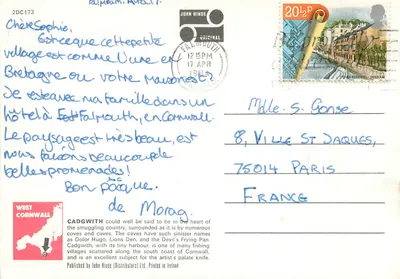 2DC173
Falmouth, April 17.
Chère Sophie,
Est-ce que cette petite
village est comme l'une en
Bretagne ou votre maison est?
Je esteavec ma famille dans un
hôtel à Falmouth, en Cornwall
Le paysage est très beau, est
nous faisons beaucoup de
belles promenades!
Bon pâque,
de Morag.
JOHN HINDE
ORIGINAL
FALMOUTH
12 15 PM
17 APR
20½P
Mdle. S. Gonse,
8, VILLE ST JAQUES,
75014 PARIS
FRANCE
WEST
CORNWALL
CADGWITH could well be said to be in the heart of
the smuggling country, surrounded as it is by numerous
coves and caves. The coves have such sinister names
as Dolor Hugo, Lions Den, and the Devil's Frying Pan.
Cadgwith, with its tiny harbour, is one of many fishing
villages scattered along the south coast of Cornwall,
and is an excellent subject for the artist's palate knife.
Published by John Hinde (Distributors) Ltd., Printed in Ireland